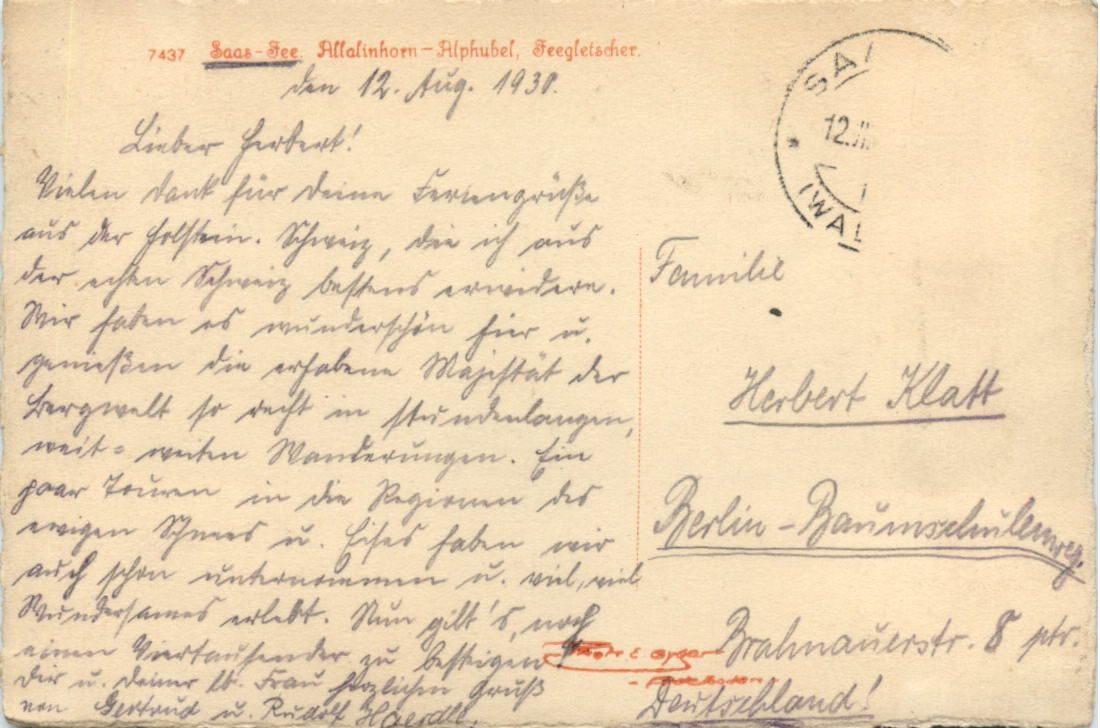 7437 Saas-Fee. Allalinhorn – Alphubel, Feegletscher.
den 12. Aug. 1930.
Lieber Herbert!
Vielen Dank für Deine Feriengrüße
aus der Holstein. Schweiz, die ich aus
der echten Schweiz bestens erwidere.
Wir haben es wunderschön hier u.
genießen die erhabene Majestät der
Bergwelt so recht in stundenlangen,
weit-weiten Wanderungen. Ein
paar Touren in die Regionen des
ewigen Schnees u. Eises haben wir
auch schon unternommen u. viel, viel
Wundersames erlebt. Nun gilt's, noch
einen Viertausender zu besteigen
Dir u. Deiner lb. Frau herzlichen Gruß
von Gertrud u. Rudolf
SAA
12.
(WAL
Familie
Herbert Klatt
Berlin-Baumschulenweg.
8 ptr.
Deutschland!